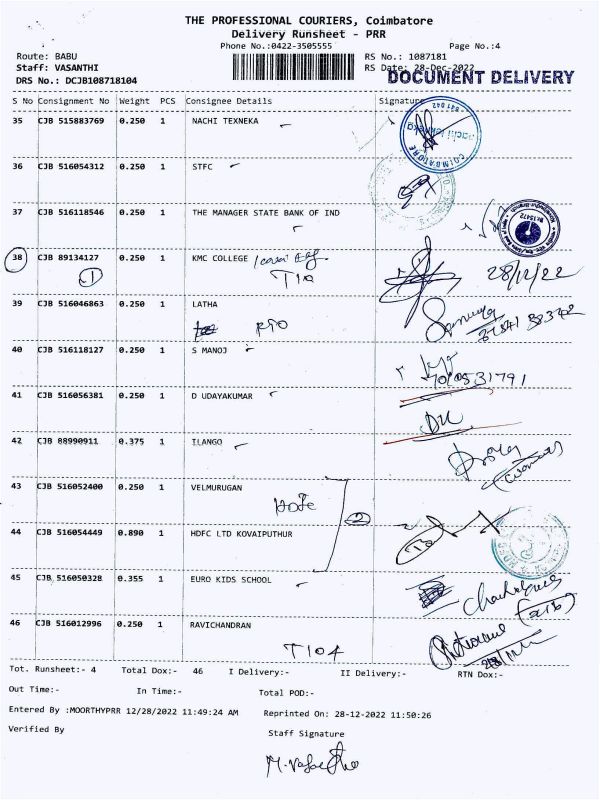 THE PROFESSIONAL COURIERS, Coimbatore
Delivery Runsheet - PRR
Phone No.:0422-3505555 Page No.:4
Route: BABU RS No.: 1087181
Staff: VASANTHI RS Date: 28-Dec-2022
DRS No.: DCJB108718104 DOCUMENT DELIVERY
S No Consignment No Weight PCS Consignee Details Signature
35 CJB 515883769 0.250 1 NACHI TEXNEKA
COIMBATORE
36 CJB 516054312 0.250 1 STFC
37 CJB 516118546 0.250 1 THE MANAGER STATE BANK OF IND
Br.15472
38 CJB 89134127 0.250 1 KMC COLLEGE
1 T10 28/12/22
39 CJB 516046863 0.250 1 LATHA
RTO
40 CJB 516118127 0.250 1 S MANOJ
41 CJB 516056381 0.250 1 D UDAYAKUMAR
DU
42 CJB 88990911 0.375 1 ILANGO
43 CJB 516052400 0.250 1 VELMURUGAN
2
44 CJB 516054449 0.890 1 HDFC LTD KOVAIPUTHUR
45 CJB 516050328 0.355 1 EURO KIDS SCHOOL
46 CJB 516012996 0.250 1 RAVICHANDRAN
T104
Tot. Runsheet:- 4 Total Dox:- 46 I Delivery:- II Delivery:- RTN Dox:-
Out Time:- In Time:- Total POD:-
Entered By :MOORTHYPRR 12/28/2022 11:49:24 AM Reprinted On: 28-12-2022 11:50:26
Verified By Staff Signature